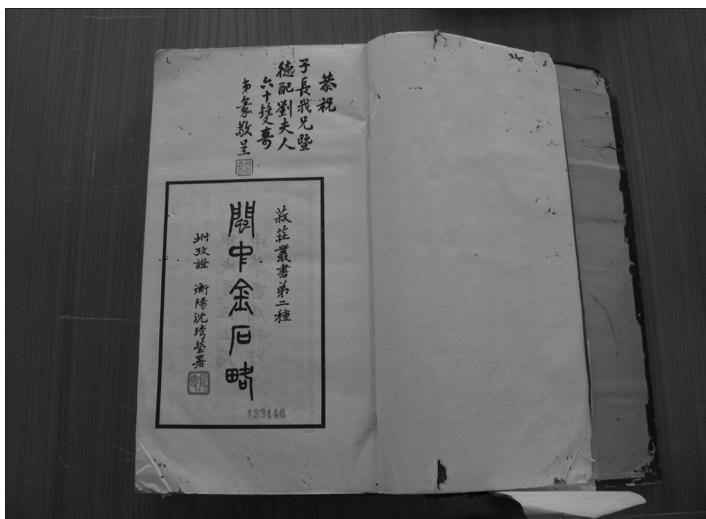 恭祝
子長我兄暨
德配劉夫人
六十雙壽
弟彖敬呈
菽莊叢書第二種
閩中金石略
坿攷證 衡陽沈琇瑩署
133146